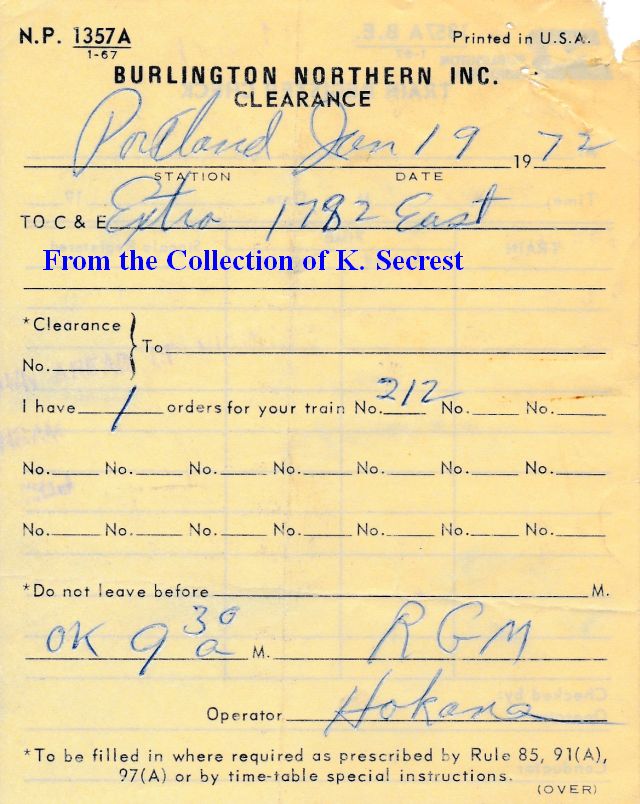 N.P. 1357A
1-67
Printed in U.S.A.
BURLINGTON NORTHERN INC.
CLEARANCE
Portland Jan 19 1972
STATION DATE
TO C & E Extra 1782 East
From the Collection of K. Secrest
*Clearance
No. To
I have 1 orders for your train No. 212 No. No.
No. No. No. No. No. No. No.
No. No. No. No. No. No. No.
*Do not leave before M.
OK 9 30 a M. RGM
Operator Hokana
*To be filled in where required as prescribed by Rule 85, 91(A),
97(A) or by time-table special instructions.
(OVER)